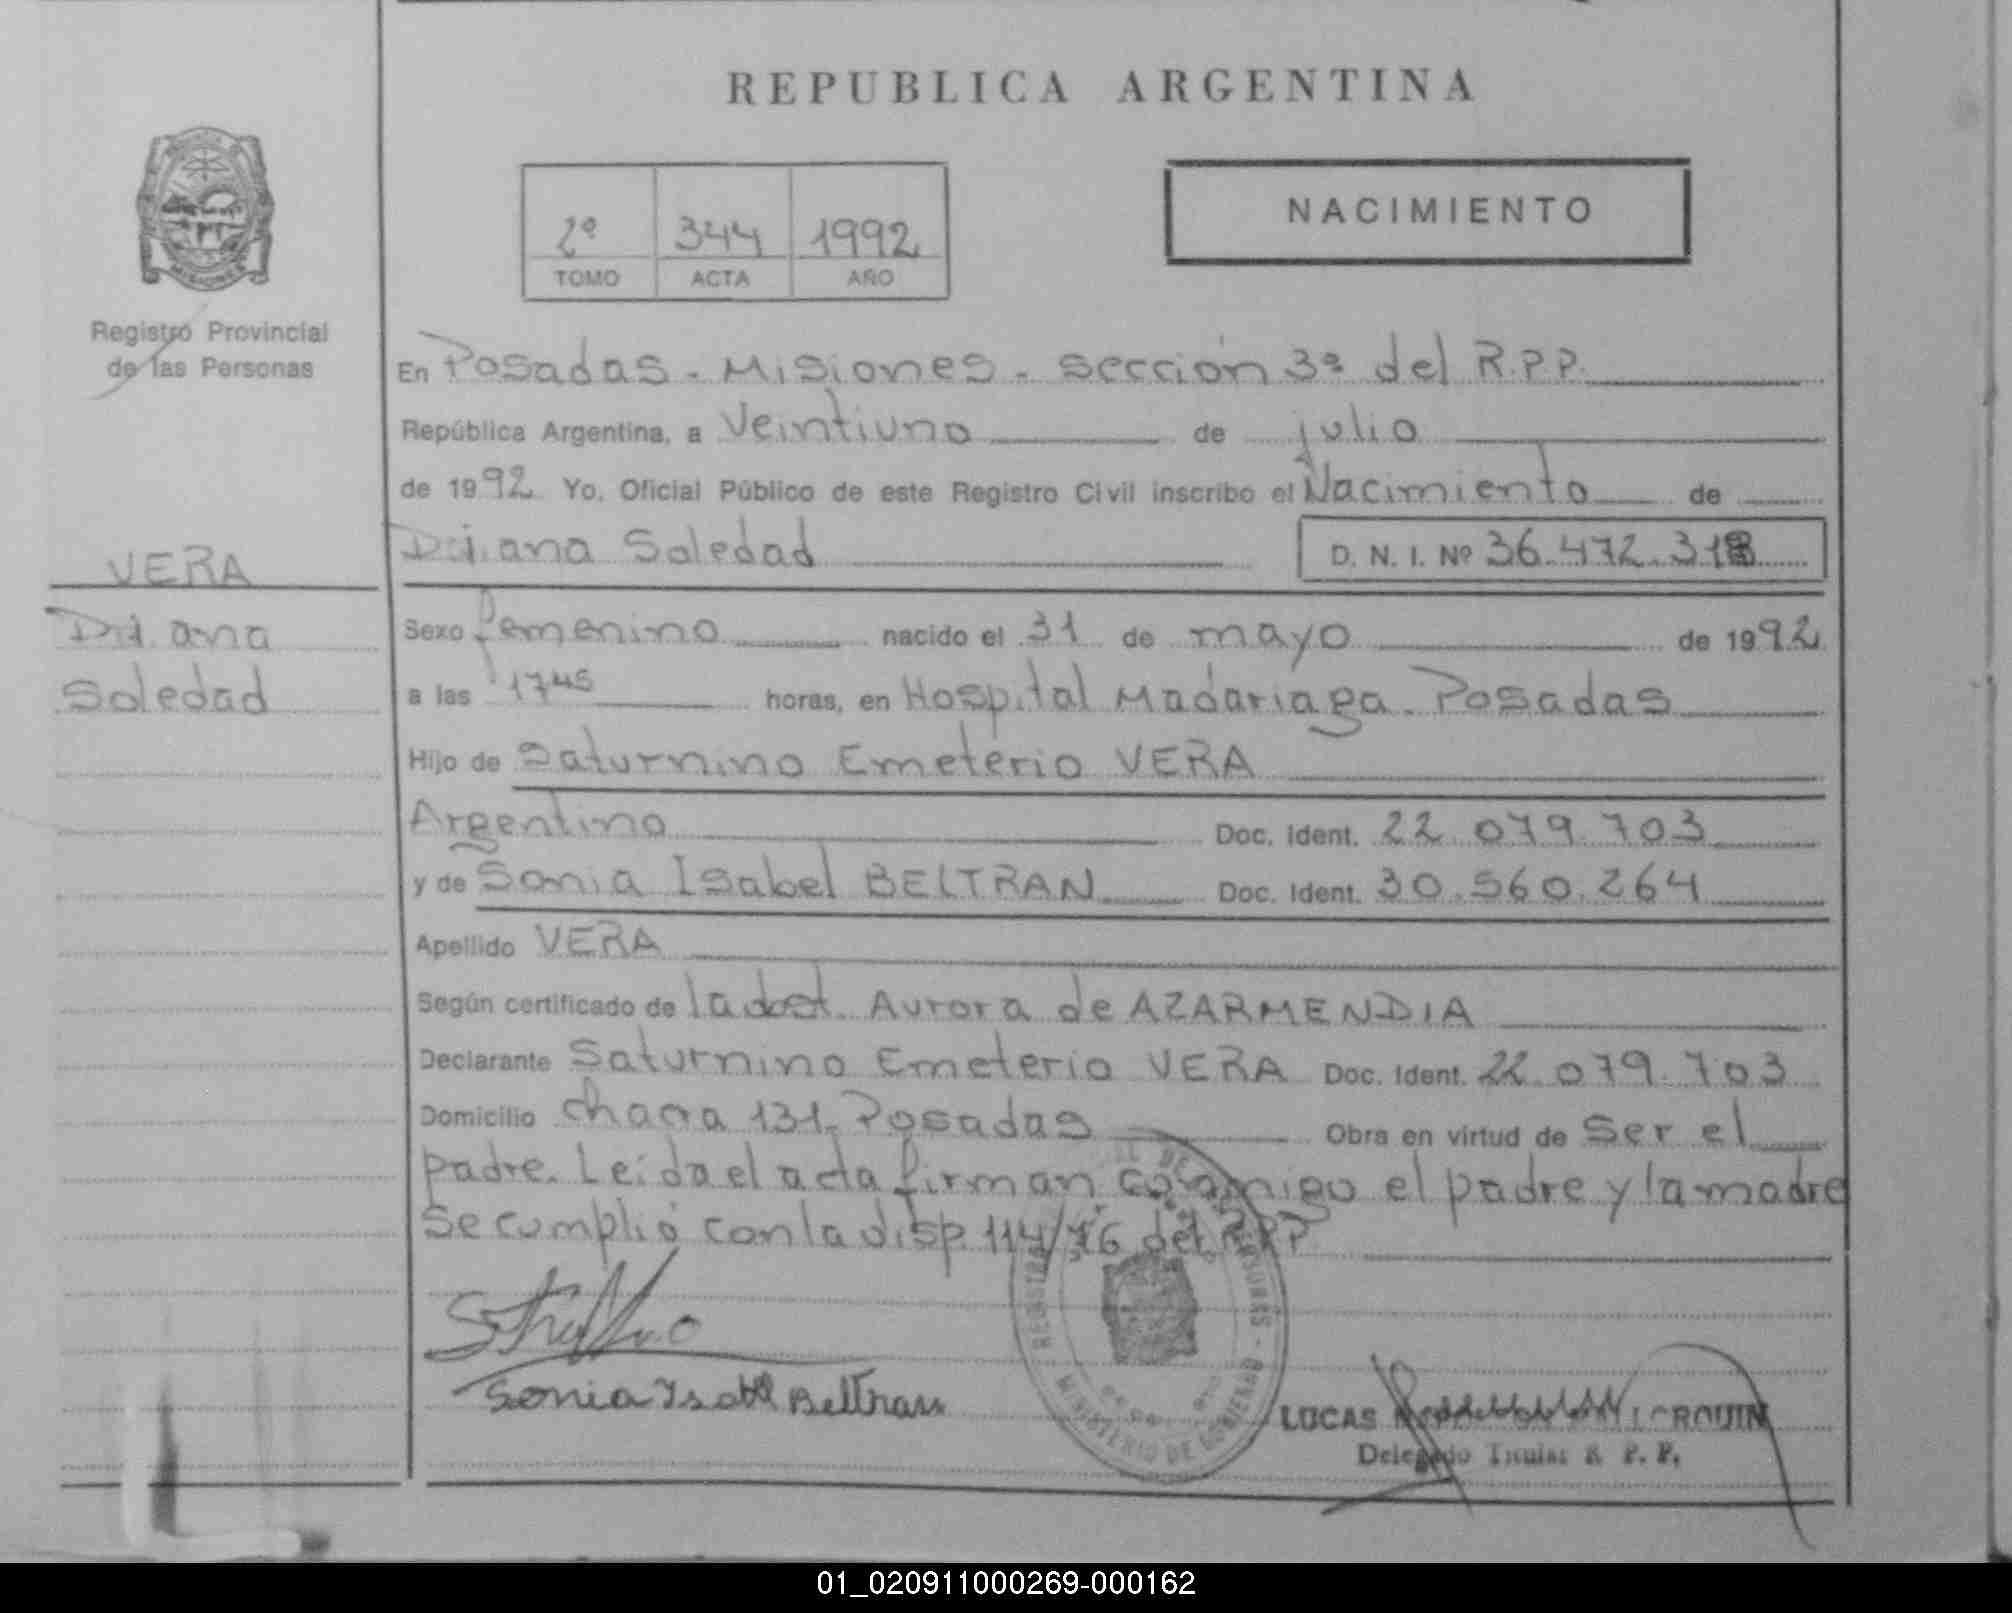 REPUBLICA ARGENTINA
2º 344 1992
TOMO ACTA AÑO
NACIMIENTO
MISIONES
Registro Provincial
de las Personas
VERA
Diana
Soledad
En Posadas - Misiones - sección 3ª del R.P.P.
República Argentina, a Veintiuno de julio
de 1992 Yo, Oficial Público de este Registro Civil inscribo el Nacimiento de
Diana Soledad D. N. I. Nº 36.472.318
Sexo femenino nacido el 31 de mayo de 1992
a las 1745 horas, en Hospital Madariaga - Posadas
Hijo de Saturnino Emeterio VERA
Argentino Doc. Ident. 22.079.703
y de Sonia Isabel BELTRAN Doc. Ident. 30.560.264
Apellido VERA
Según certificado de la doct. Aurora de AZARMENDIA
Declarante Saturnino Emeterio VERA Doc. Ident. 22.079.703
Domicilio chacra 131. Posadas Obra en virtud de Ser el
padre. Leída el acta firman conmigo el padre y la madre
Se cumplió con la disp. 114/76 del RPP
Sonia Isabel Beltran
MINISTERIO DE GOBIERNO
LUCAS
Delegado Titular R. P. P.
01_020911000269-000162